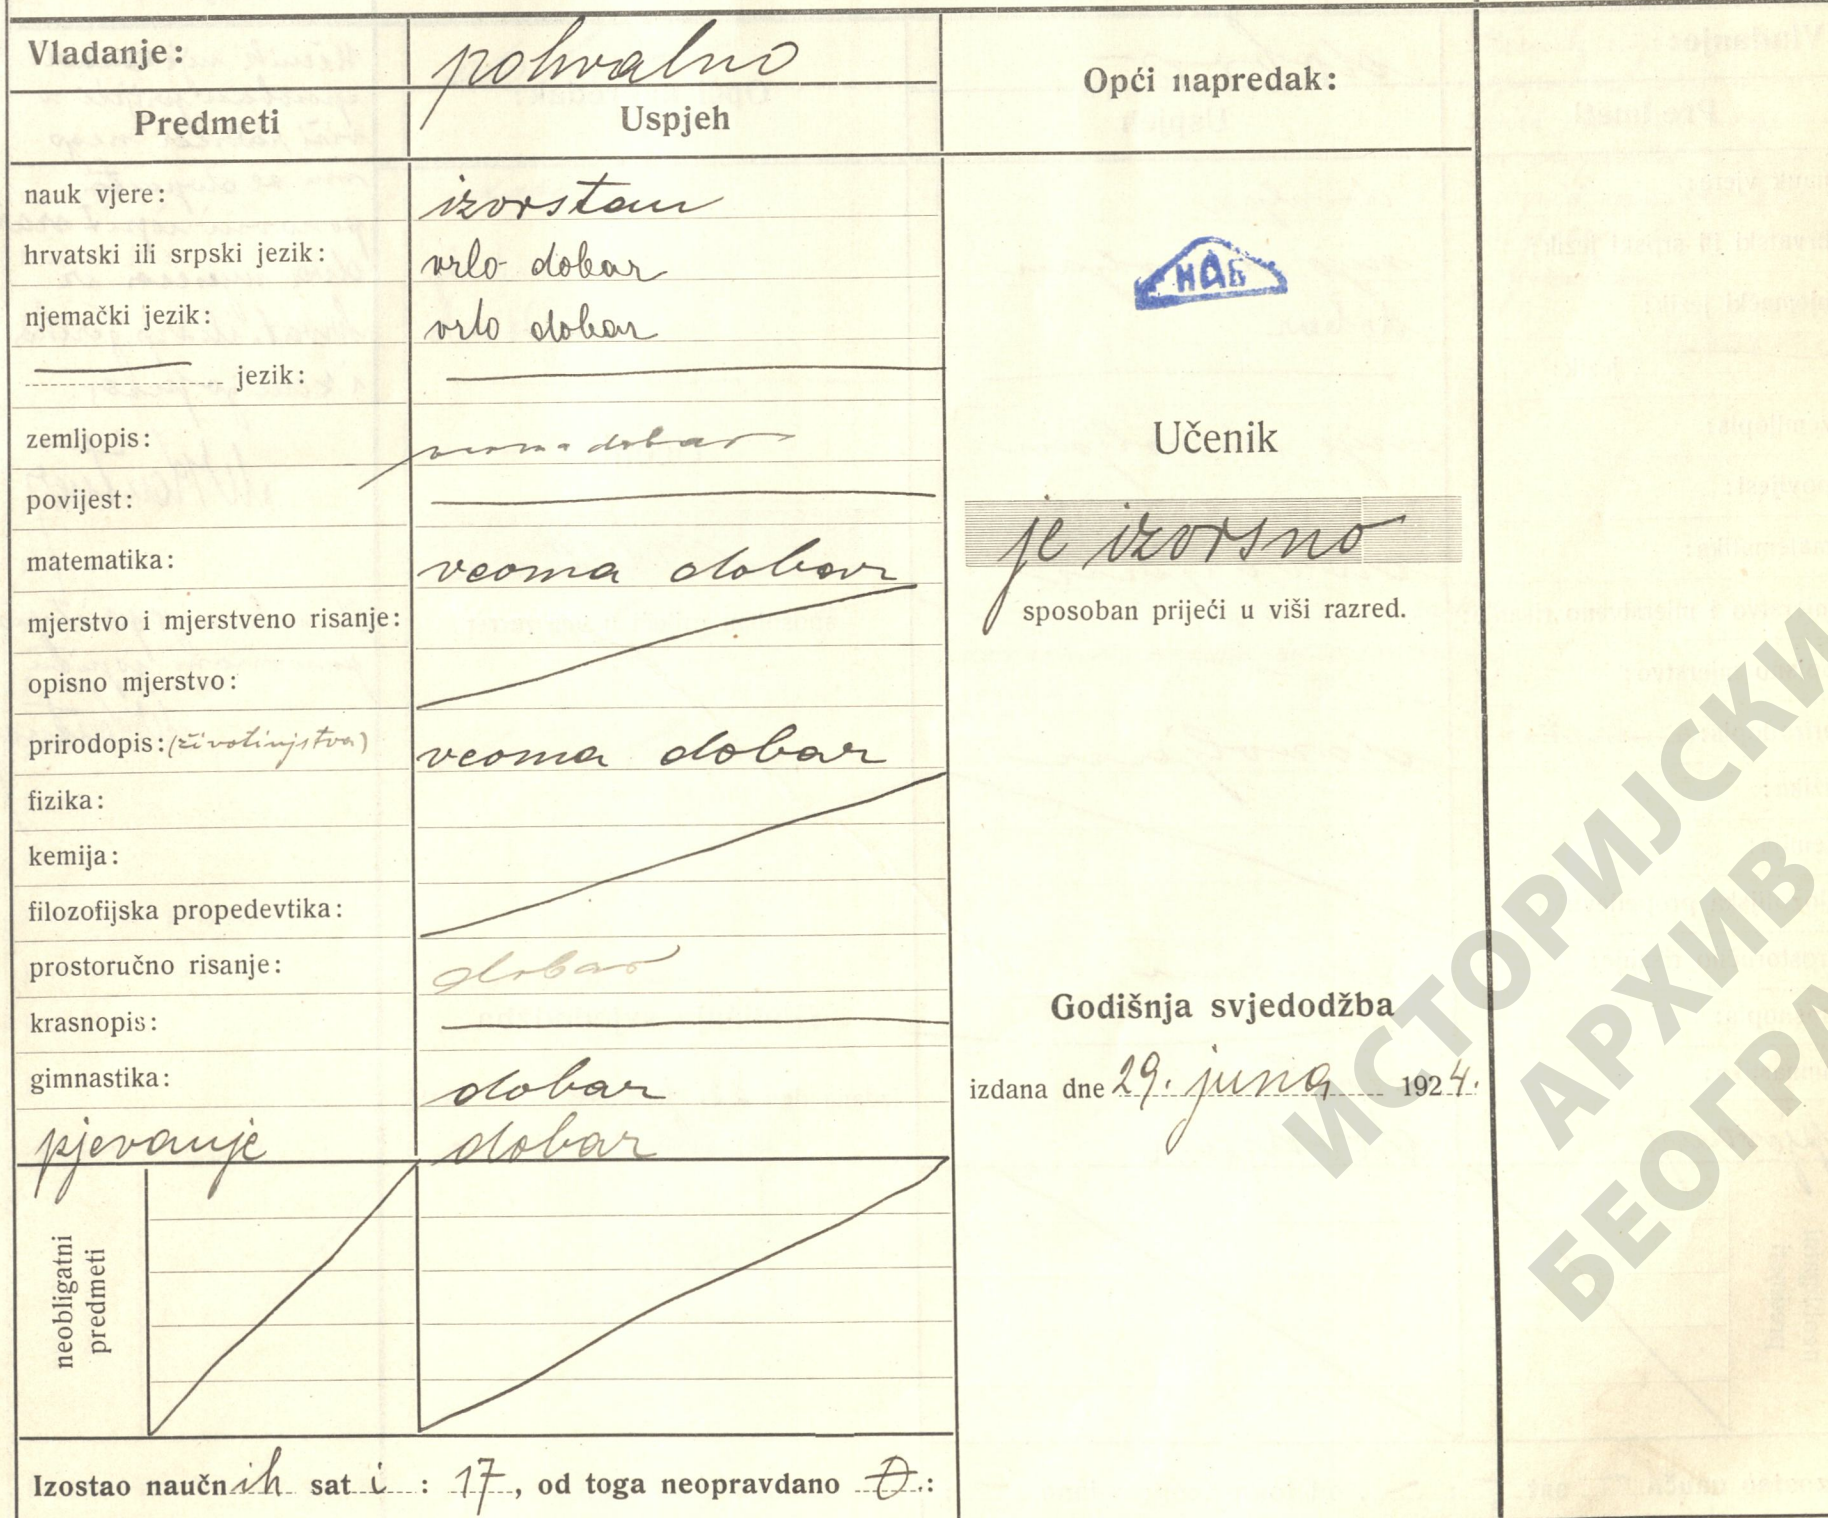 Vladanje: pohvalno
Predmeti Uspjeh
nauk vjere: izvrstan
hrvatski ili srpski jezik: vrlo dobar
njemački jezik: vrlo dobar
jezik:
zemljopis: veoma dobar
povijest:
matematika: veoma dobar
mjerstvo i mjerstveno risanje:
opisno mjerstvo:
prirodopis: (životinjstva) veoma dobar
fizika:
kemija:
filozofijska propedevtika:
prostoručno risanje: dobar
krasnopis:
gimnastika: dobar
pjevanje dobar
neobligatni
predmeti
Izostao naučnih sati: 17, od toga neopravdano 0.:
Opći napredak:
НАБ
Učenik
je izvrsno
sposoban prijeći u viši razred.
Godišnja svjedodžba
izdana dne 29. juna 1924.
ИСТОРИЈСКИ
АРХИВ
БЕОГРА